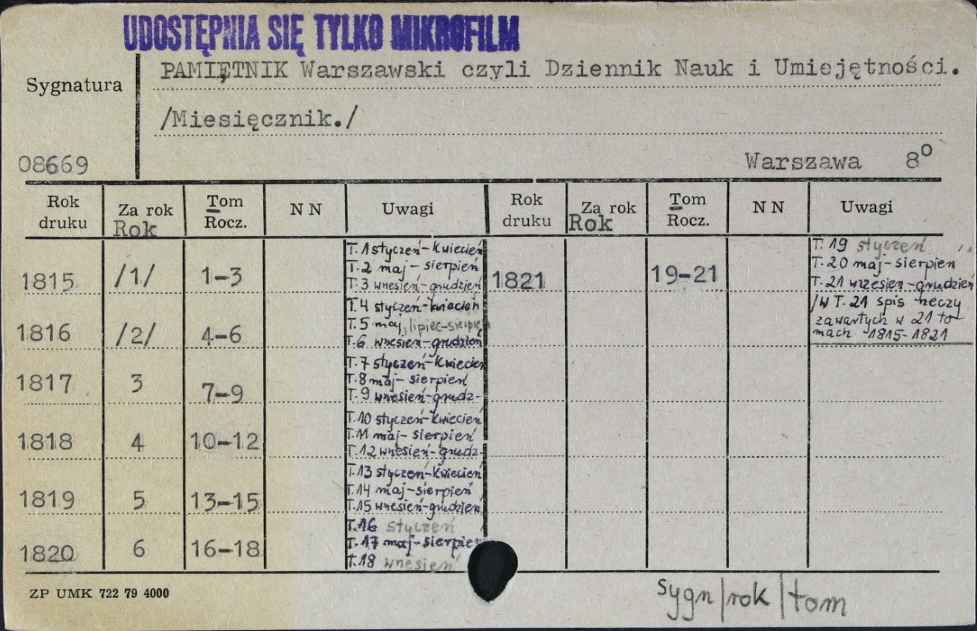 UDOSTĘPNIA SIĘ TYLKO MIKROFILM
Sygnatura
PAMIĘTNIK Warszawski czyli Dziennik Nauk i Umiejętności.
/Miesięcznik./
08669
Warszawa 8o
Rok druku Za rok Rok Tom Rocz. N N Uwagi Rok druku Za rok Rok Tom Rocz. N N Uwagi
1815 /1/ 1-3
T.1 styczeń-kwiecień
T.2 maj-sierpień
T.3 wrzesień-grudzień
1816 /2/ 4-6
T.4 styczeń-kwiecień
T.5 maj, lipiec-sierpień
T.6 wrzesień-grudzień
1817 3 7-9
T.7 styczeń-kwiecień
T.8 maj-sierpień
T.9 wrzesień-grudz-
1818 4 10-12
T.10 styczeń-kwiecień
T.11 maj-sierpień
T.12 wrzesień-grudz-
1819 5 13-15
T.13 styczeń-kwiecień
T.14 maj-sierpień
T.15 wrzesień-grudzień
1820 6 16-18
T.16 styczeń
T.17 maj-sierpień
T.18 wrzesień
1821 19-21
T.19 styczeń
T.20 maj-sierpień
T.21 wrzesień-grudzień
/W T.21 spis rzeczy
zawartych w 21 to-
mach 1815-1821
ZP UMK 722 79 4000
sygn/rok/tom